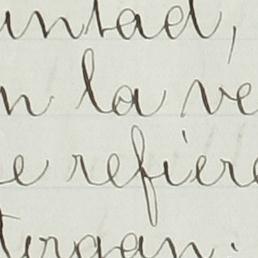 untad,
n la ve
e refiere
urgan.